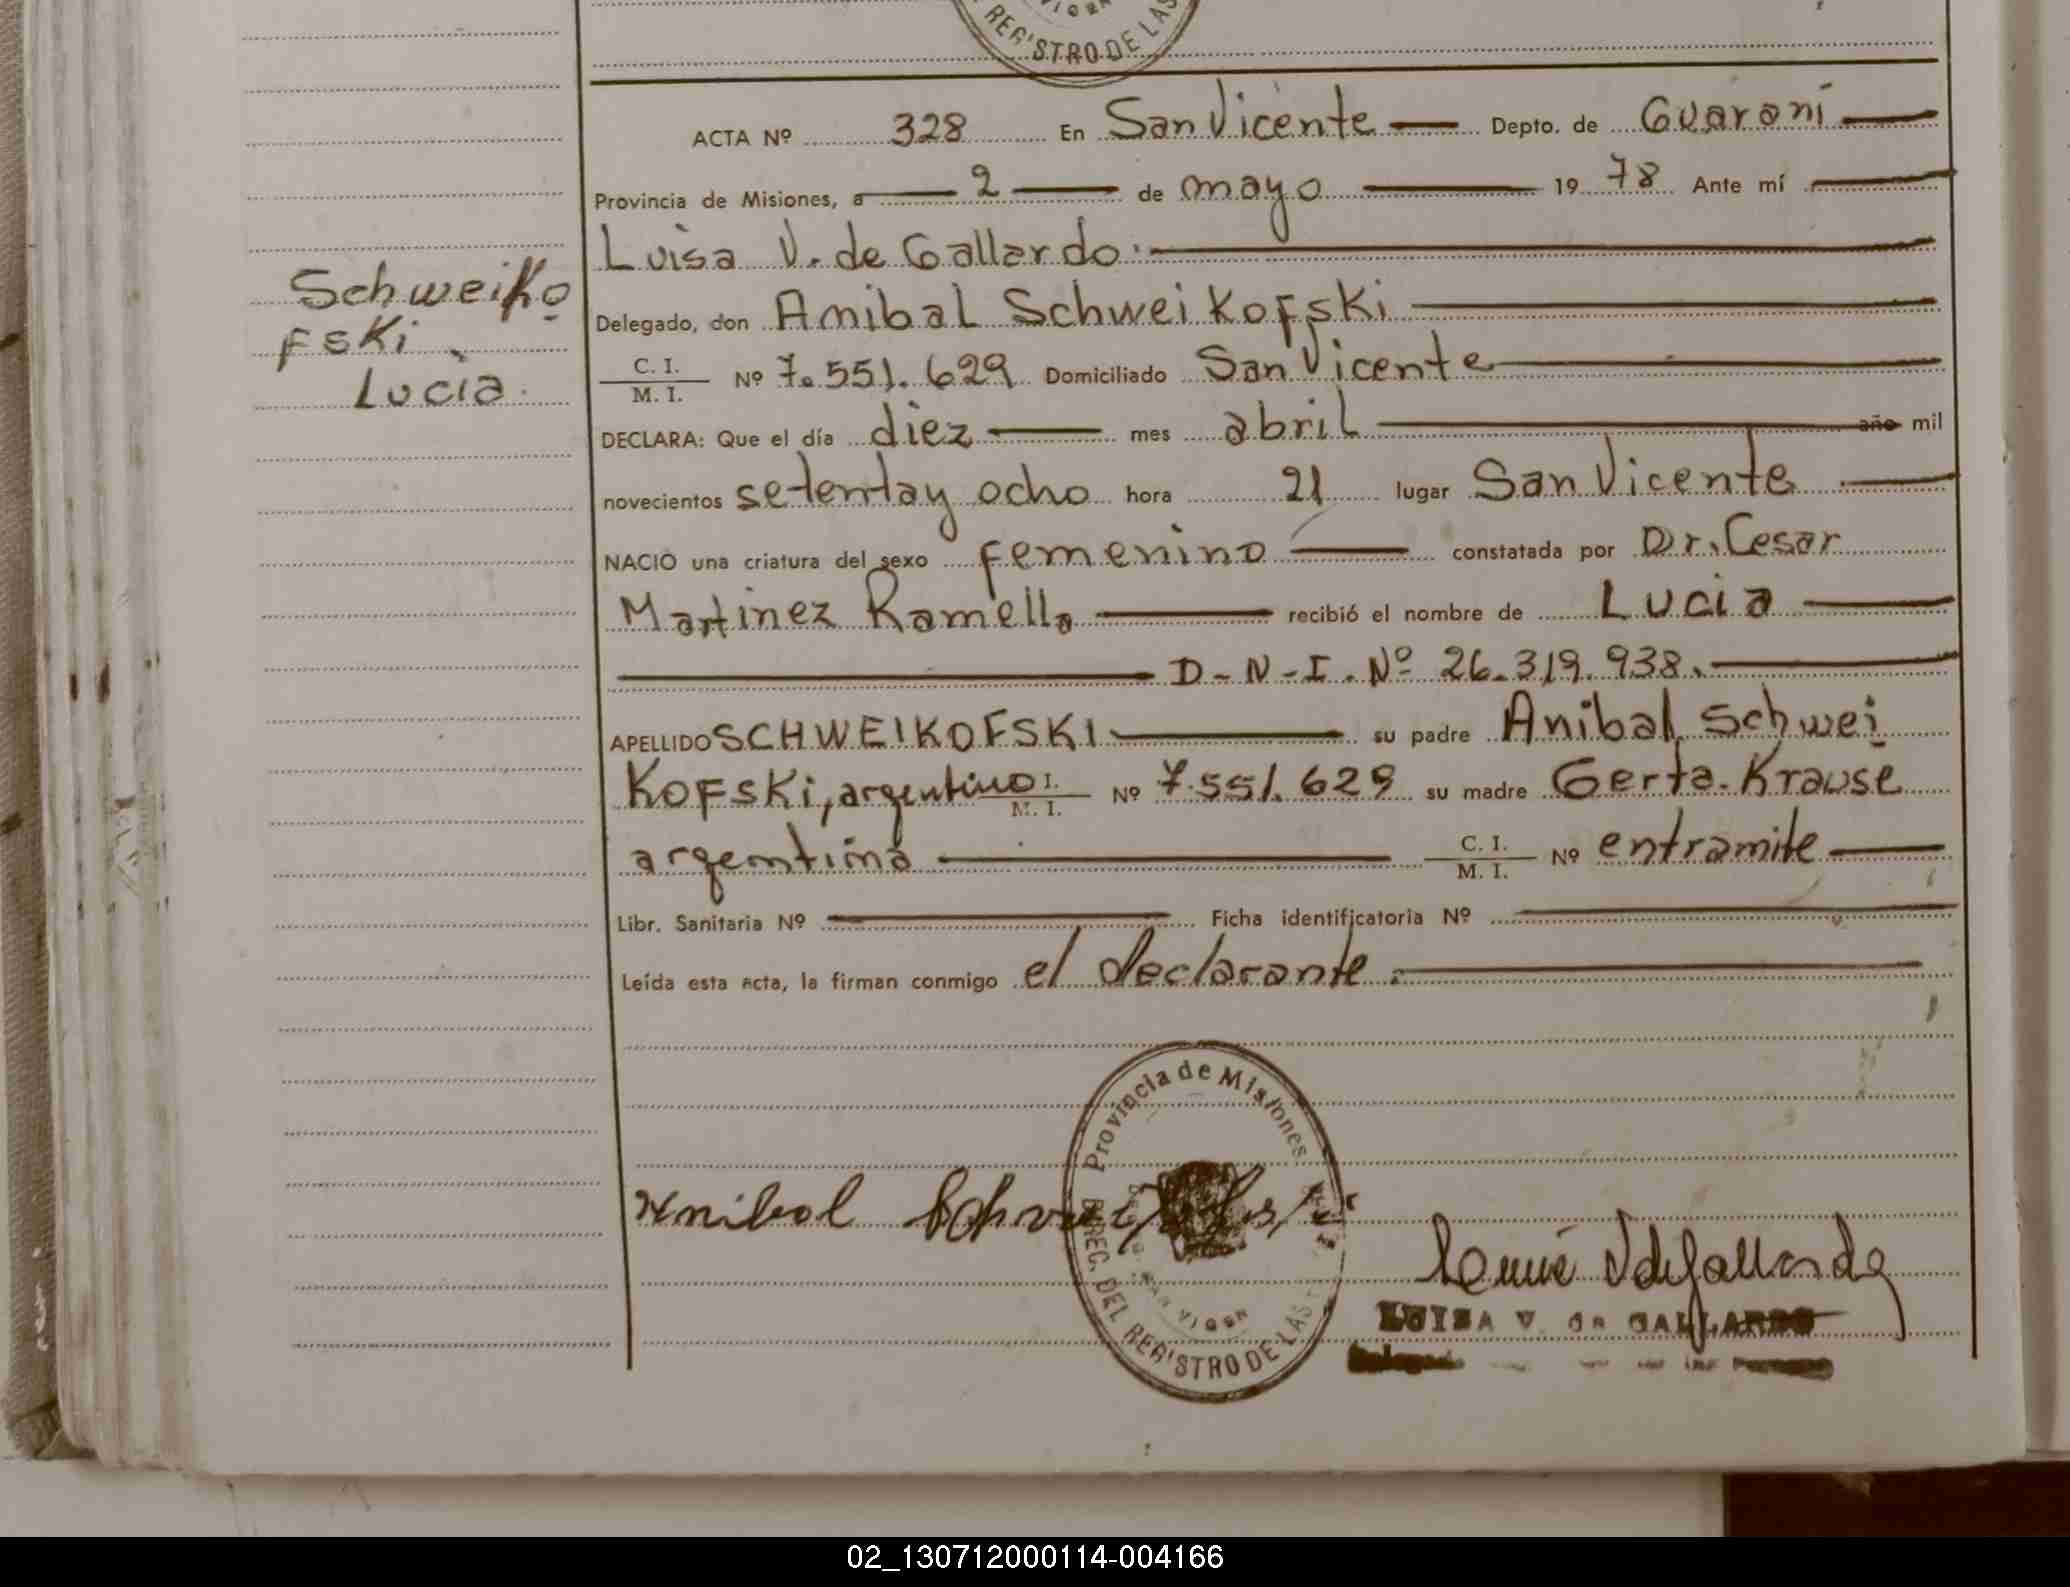 REG'STRO DE LAS
ACTA Nº 328 En San Vicente Depto. de Guaraní
Provincia de Misiones, a 2 de mayo 1978 Ante mí
Luisa V. de Gallardo.
Delegado, don Anibal Schweikofski
Schweiko
fski
Lucia.
C. I.
M. I. Nº 7.551.629 Domiciliado San Vicente
DECLARA: Que el día diez mes abril año mil
novecientos setentay ocho hora 21 lugar San Vicente
NACIO una criatura del sexo femenino constatada por Dr. Cesar
Martinez Ramella recibió el nombre de Lucia
D-N-I. Nº 26.319.938.
APELLIDO SCHWEIKOFSKI su padre Anibal Schwei
Kofski, argentino I.
M. I. Nº 7.551.629 su madre Gerta. Krause
argentina C. I.
M. I. Nº entramite
Libr. Sanitaria Nº Ficha identificatoria Nº
Leída esta acta, la firman conmigo el declarante.
Provincia de Misiones
DIREC. DEL REG'STRO DE LAS
Anibal Schweikofski
LUISA V. de GALLARDO
02_130712000114-004166